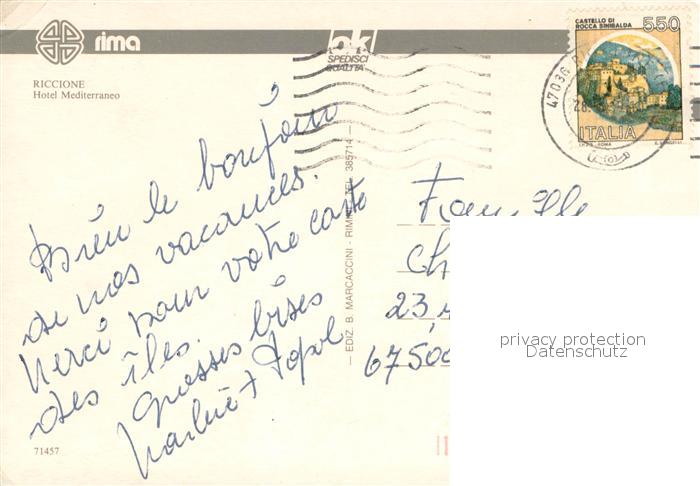 rima
bk
SPEDISCI
QUALITA'
CASTELLO DI
ROCCA SINIBALDA
550
47036
28
ITALIA
I.P.Z.S. ROMA
RICCIONE
Hotel Mediterraneo
Bien le bonjour
de nos vacances.
Merci pour votre carte
des îles.
Grosses bises
— EDIZ. B. MARCACCINI - RIMINI - TEL. 385714 —
Famille
Ch
23,
67500
privacy protection
Datenschutz
71457